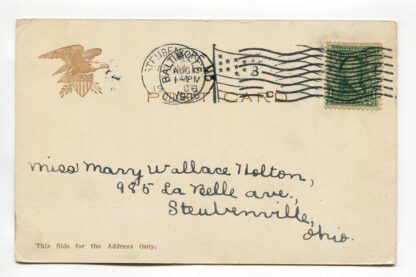 BALTIMORE, MD.
AUG 13
1 - PM
1906
3
POST CARD
Miss Mary Wallace Holton,
985 La Belle ave.,
Steubenville,
Ohio.
This Side for the Address Only.